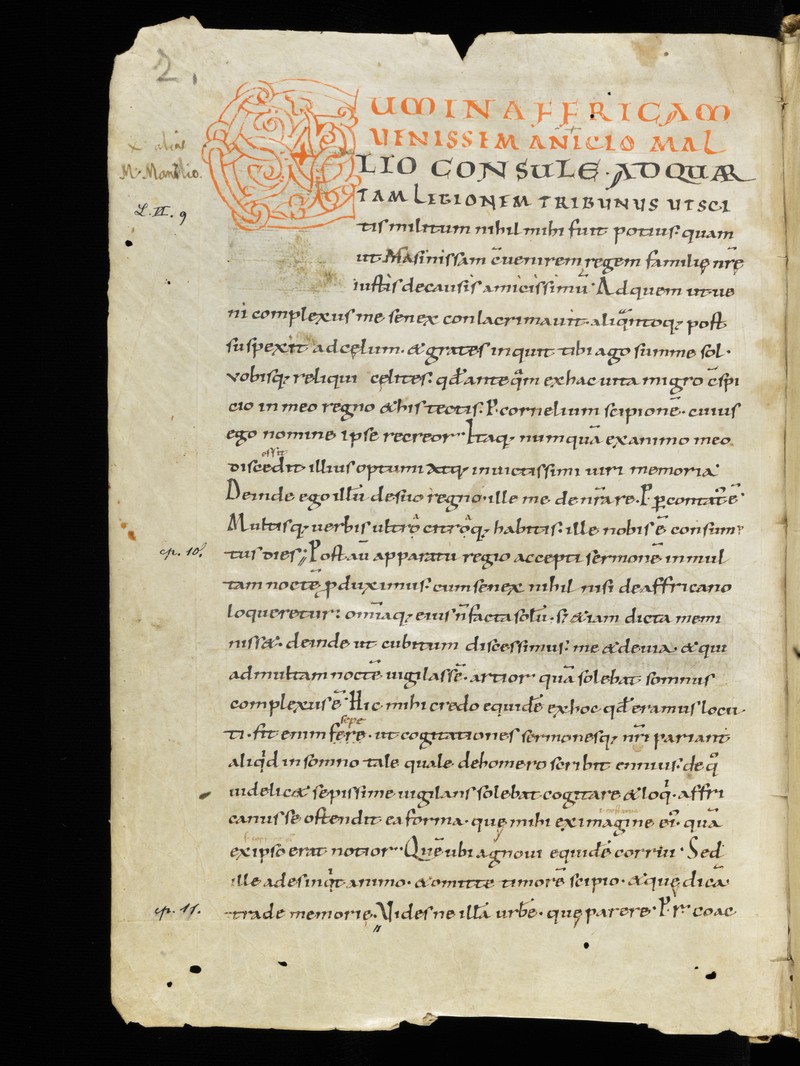 2.
CUM IN AFFRICAM
UENISSEM ANICIO MAL
× alias
M. Manilio.
LIO CONSULE. AD QUAR
TAM LEGIONEM TRIBUNUS UT SCI
L. VI. 9
tis militum nihil mihi fuit potius. quam
ut Masinissam c̄uenirem regem familię nr̄ę
iustis de causis amicissimū. Ad quem ut ue
ni complexus me senex conlacrimauit. aliqn̄toq; post
suspexit ad cęlum. & grates inquit tibi ago summe sol.
vobisq; reliqui cęlites. qđ ante q̄m ex hac uita migro c̄spi
cio in meo regno & his tectis. P. cornelium scipionē. cuius
ego nomine ipse recreor. Itaq; numquā ex animo meo
discedit illius optumi atq; inuictissimi uiri memoria.
Deinde ego illū de suo regno. ille me de nr̄a re. P. ꝑcontatꝰ ē
Multisq; uerbis ultro citroq; habitis. ille nobis ē consum
cp. 10.
tus dies; Post aū apparatu regio accepti sermonē in mul
tam noctē ꝓduximus. cum senex nihil nisi de affricano
loqueretur. omīaq; eius n̄ facta solū. s; &iam dicta memi
niss&. deinde ut cubitum discessimus. me & de uia. & qui
ad multam noctē uigilassē. artior quā solebat somnus
complexus ē. Hic mihi credo equidē ex hoc qđ eramus locu
sepe
ti. fit enim fere. ut cogitationes sermonesq; nr̄i pariant
aliqd in somno tale quale de homero scribit ennius. de q̊
uidelic& sepissime uigilans solebat cogitare & loqi. affri
canus se ostendit ea forma. quę mihi ex imagine eiꝰ. quā
ex ipso erat notior. Quē ubi agnoui equidē corrui. Sed
ille ades inqt animo. & omitte timorē scipio. & quę dicā
cp. 11.
trade memorię. Videsne illā urbē. quę parere. P. r. coac